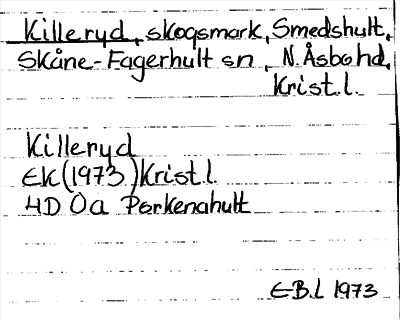 Killeryd, skogsmark, Smedshult,
Skåne-Fagerhult sn, N. Åsbo hd,
Krist. l.
Killeryd
EK (1973) Krist. l.
4D Öa Perkenahult
E-B.L 1973